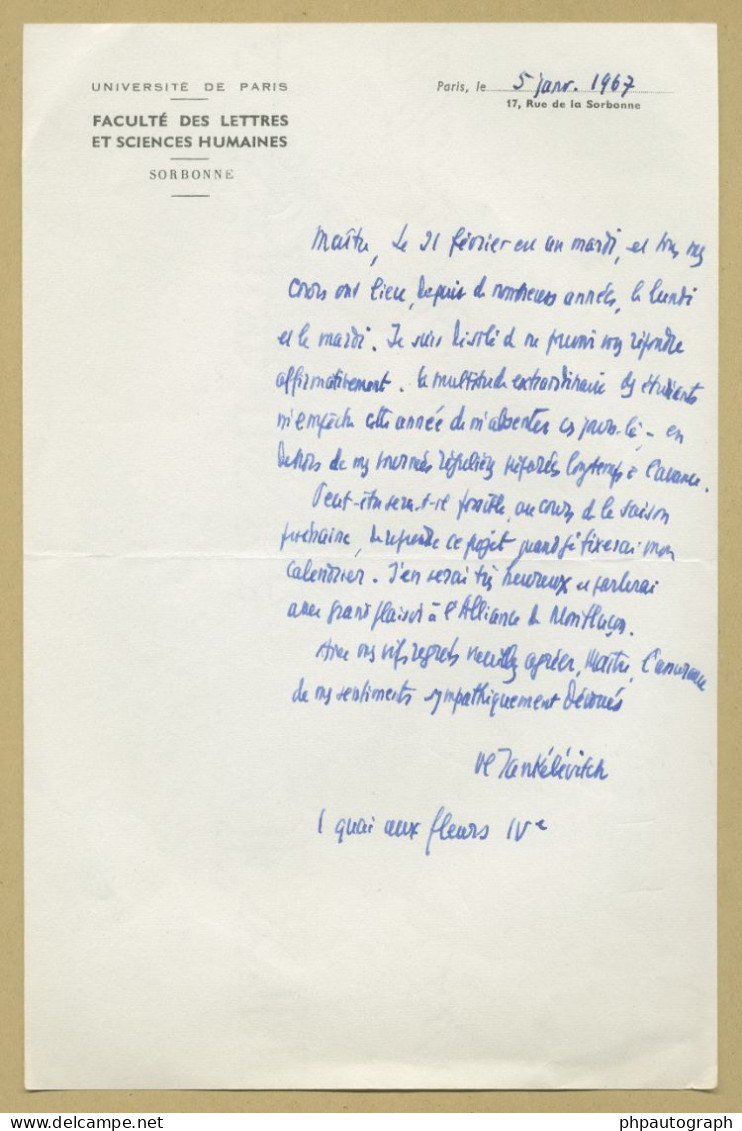 UNIVERSITÉ DE PARIS
FACULTÉ DES LETTRES
ET SCIENCES HUMAINES
SORBONNE
Paris, le 5 janv. 1967
17, Rue de la Sorbonne
Maître, Le 21 février est un mardi, et tous mes
cours ont lieu, depuis de nombreuses années, le lundi
et le mardi. Je suis désolé de ne pouvoir vous répondre
affirmativement. La multitude extraordinaire des étudiants
m'empêche cette année de m'absenter ces jours-là, - en
dehors de mes tournées régulières préparées longtemps à l'avance.
Peut-être sera-t-il possible, au cours de la saison
prochaine, de reprendre ce projet quand je fixerai mon
calendrier. J'en serai très heureux et parlerai
avec grand plaisir à l'Alliance de Montluçon.
Avec mes vifs regrets veuillez agréer, Maître, l'assurance
de mes sentiments sympathiquement dévoués
Vl Jankélévitch
1 quai aux fleurs IVe
phpautograph